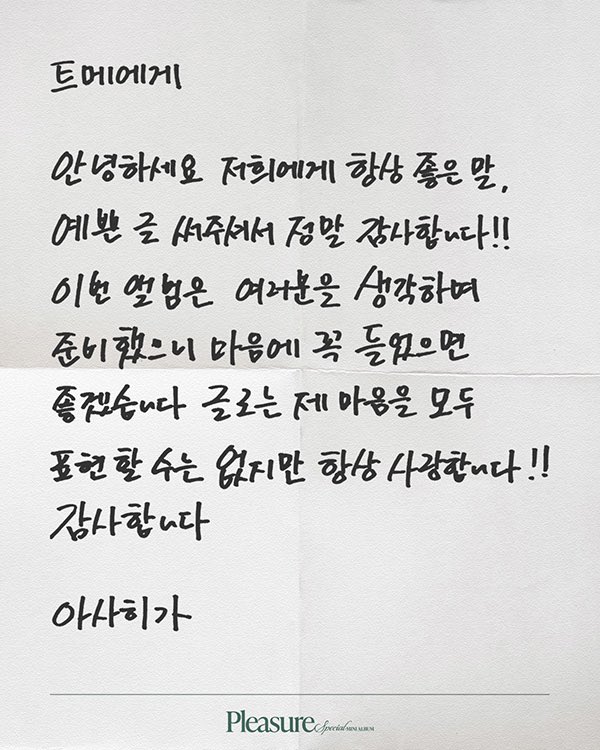 트메에게
안녕하세요 저희에게 항상 좋은 말,
예쁜 글 써주셔서 정말 감사합니다!!
이번 앨범은 여러분을 생각하며
준비했으니 마음에 꼭 들었으면
좋겠습니다 글로는 제 마음을 모두
표현 할 수는 없지만 항상 사랑합니다!!
감사합니다
아사히가
Pleasure Special MINI ALBUM